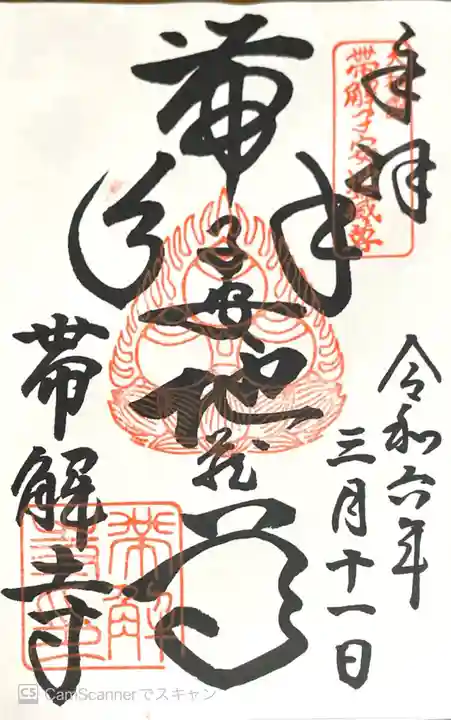 奉拝
帯解子安地蔵尊
令和六年三月十一日
帯解子安地蔵尊
帯解寺
CS CamScannerでスキャン